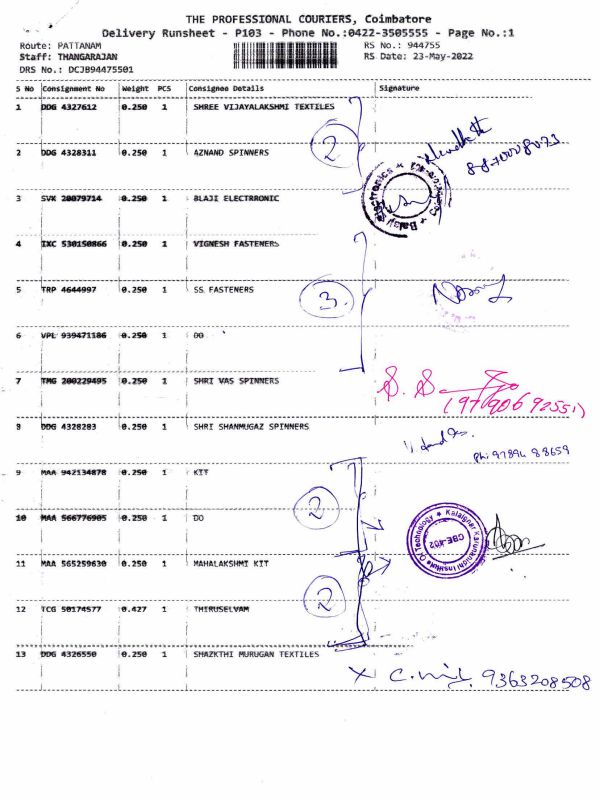 THE PROFESSIONAL COURIERS, Coimbatore
Delivery Runsheet - P103 - Phone No.:0422-3505555 - Page No.:1
Route: PATTANAM RS No.: 944755
Staff: THANGARAJAN RS Date: 23-May-2022
DRS No.: DCJB94475501
S No Consignment No Weight PCS Consignee Details Signature
1 DDG 4327612 0.250 1 SHREE VIJAYALAKSHMI TEXTILES
2
2 DDG 4328311 0.250 1 AZNAND SPINNERS
3 SVK 20079714 0.250 1 BLAJI ELECTRRONIC
4 IXC 530150866 0.250 1 VIGNESH FASTENERS
5 TRP 4644997 0.250 1 SS. FASTENERS
3.
6 VPL 939471186 0.250 1 DO
7 TMG 200229495 0.250 1 SHRI VAS SPINNERS
(9790692551)
8 DDG 4328283 0.250 1 SHRI SHANMUGAZ SPINNERS
ph: 97894 88659
9 MAA 942134878 0.250 1 KIT
2
10 MAA 566776905 0.250 1 DO
Kalaignar Karunanidhi Institute Of Technology
CBE-402
11 MAA 565259630 0.250 1 MAHALAKSHMI KIT
2
12 TCG 50174577 0.427 1 THIRUSELVAM
13 DDG 4326550 0.250 1 SHAZKTHI MURUGAN TEXTILES
9363208508